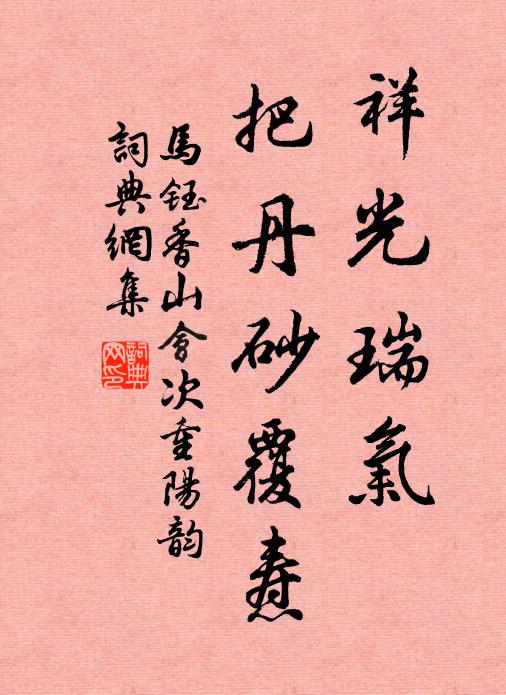 祥光瑞氣
把丹砂覆燾
馬鈺香山會次重陽韵
詞典網集
詞典
网印